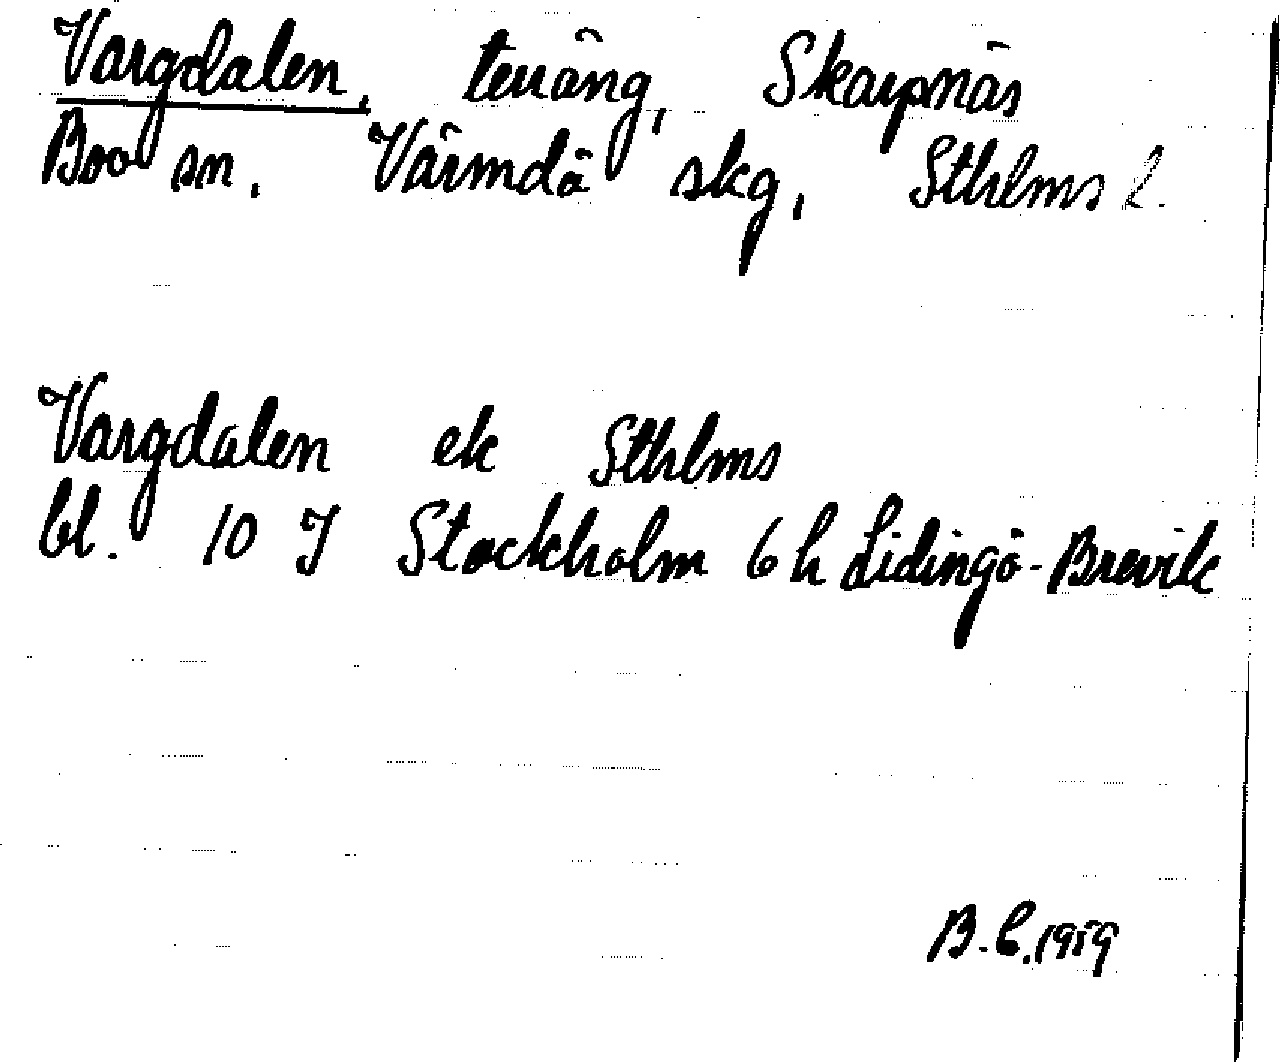 Vargdalen, terräng, Skarpnäs
Boo sn. Värmdö skg, Sthlms l.
Vargdalen ek Sthlms
bl. 10 I Stockholm 6 h Lidingö-Brevik
B.C. 1959